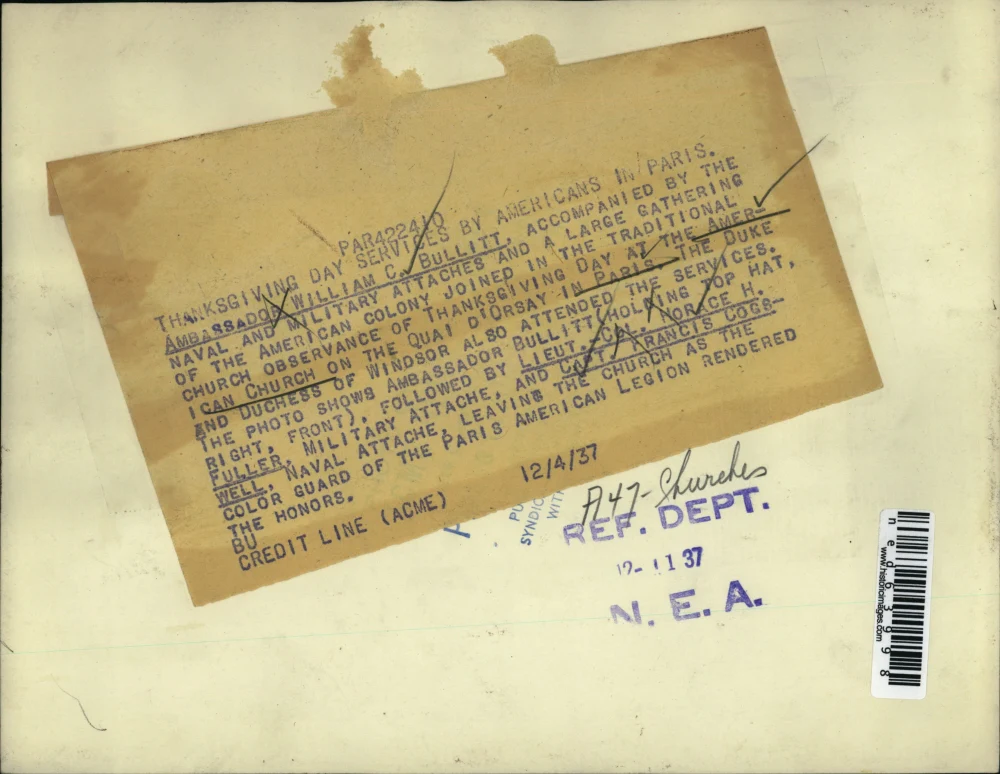 PAR422410
THANKSGIVING DAY SERVICES BY AMERICANS IN PARIS.
AMBASSADOR WILLIAM C. BULLITT, ACCOMPANIED BY THE
NAVAL AND MILITARY ATTACHES AND A LARGE GATHERING
OF THE AMERICAN COLONY JOINED IN THE TRADITIONAL
CHURCH OBSERVANCE OF THANKSGIVING DAY AT THE AMER-
ICAN CHURCH ON THE QUAI D'ORSAY IN PARIS. THE DUKE
AND DUCHESS OF WINDSOR ALSO ATTENDED THE SERVICES.
THE PHOTO SHOWS AMBASSADOR BULLITT (HOLDING TOP HAT,
RIGHT, FRONT), FOLLOWED BY LIEUT. COL. HORACE H.
FULLER, MILITARY ATTACHE, AND CAPT. FRANCIS COGS-
WELL, NAVAL ATTACHE, LEAVING THE CHURCH AS THE
COLOR GUARD OF THE PARIS AMERICAN LEGION RENDERED
THE HONORS.
BU
CREDIT LINE (ACME) 12/4/37
A
PU
SYNDIC
WIT
A47-Churches
REF. DEPT.
12-11 37
N. E. A.
www.historicimages.com
ned63998